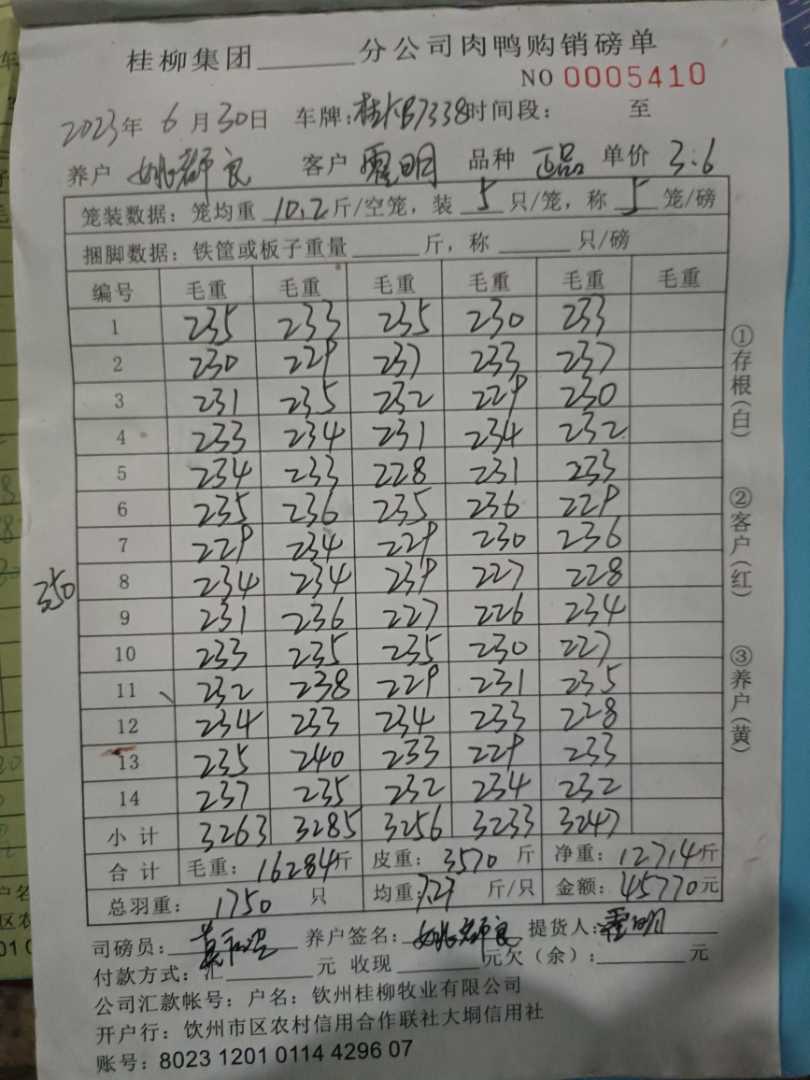 桂柳集团______分公司肉鸭购销磅单
NO 0005410
2023年 6月30日 车牌:桂KB7338 时间段: 至
养户 姚君良 客户 霍明 品种 正品 单价 3.6
笼装数据:笼均重 10.2 斤/空笼,装 5 只/笼,称 5 笼/磅
捆脚数据:铁筐或板子重量______斤,称______只/磅
编号 毛重 毛重 毛重 毛重 毛重 毛重
1 235 233 235 230 233
2 230 229 237 233 237
3 231 235 232 229 230
4 233 234 231 234 232
5 234 233 228 231 233
6 235 236 235 236 229
7 229 234 229 230 236
350
8 234 234 239 227 228
9 231 236 227 226 234
10 233 235 235 230 227
11 232 238 229 231 235
12 234 233 234 233 228
13 235 240 233 229 233
14 237 235 232 234 232
小计 3263 3285 3256 3233 3247
合计 毛重:16284斤 皮重:3570斤 净重:12714斤
总羽重:1750只 均重:7.27斤/只 金额:45770元
①存根(白)
②客户(红)
③养户(黄)
司磅员: 养户签名: 提货人:霍明
付款方式:汇______元 收现______元欠(余):______元
公司汇款帐号:户名:钦州桂柳牧业有限公司
开户行:钦州市区农村信用合作联社大垌信用社
账号:8023 1201 0114 4296 07